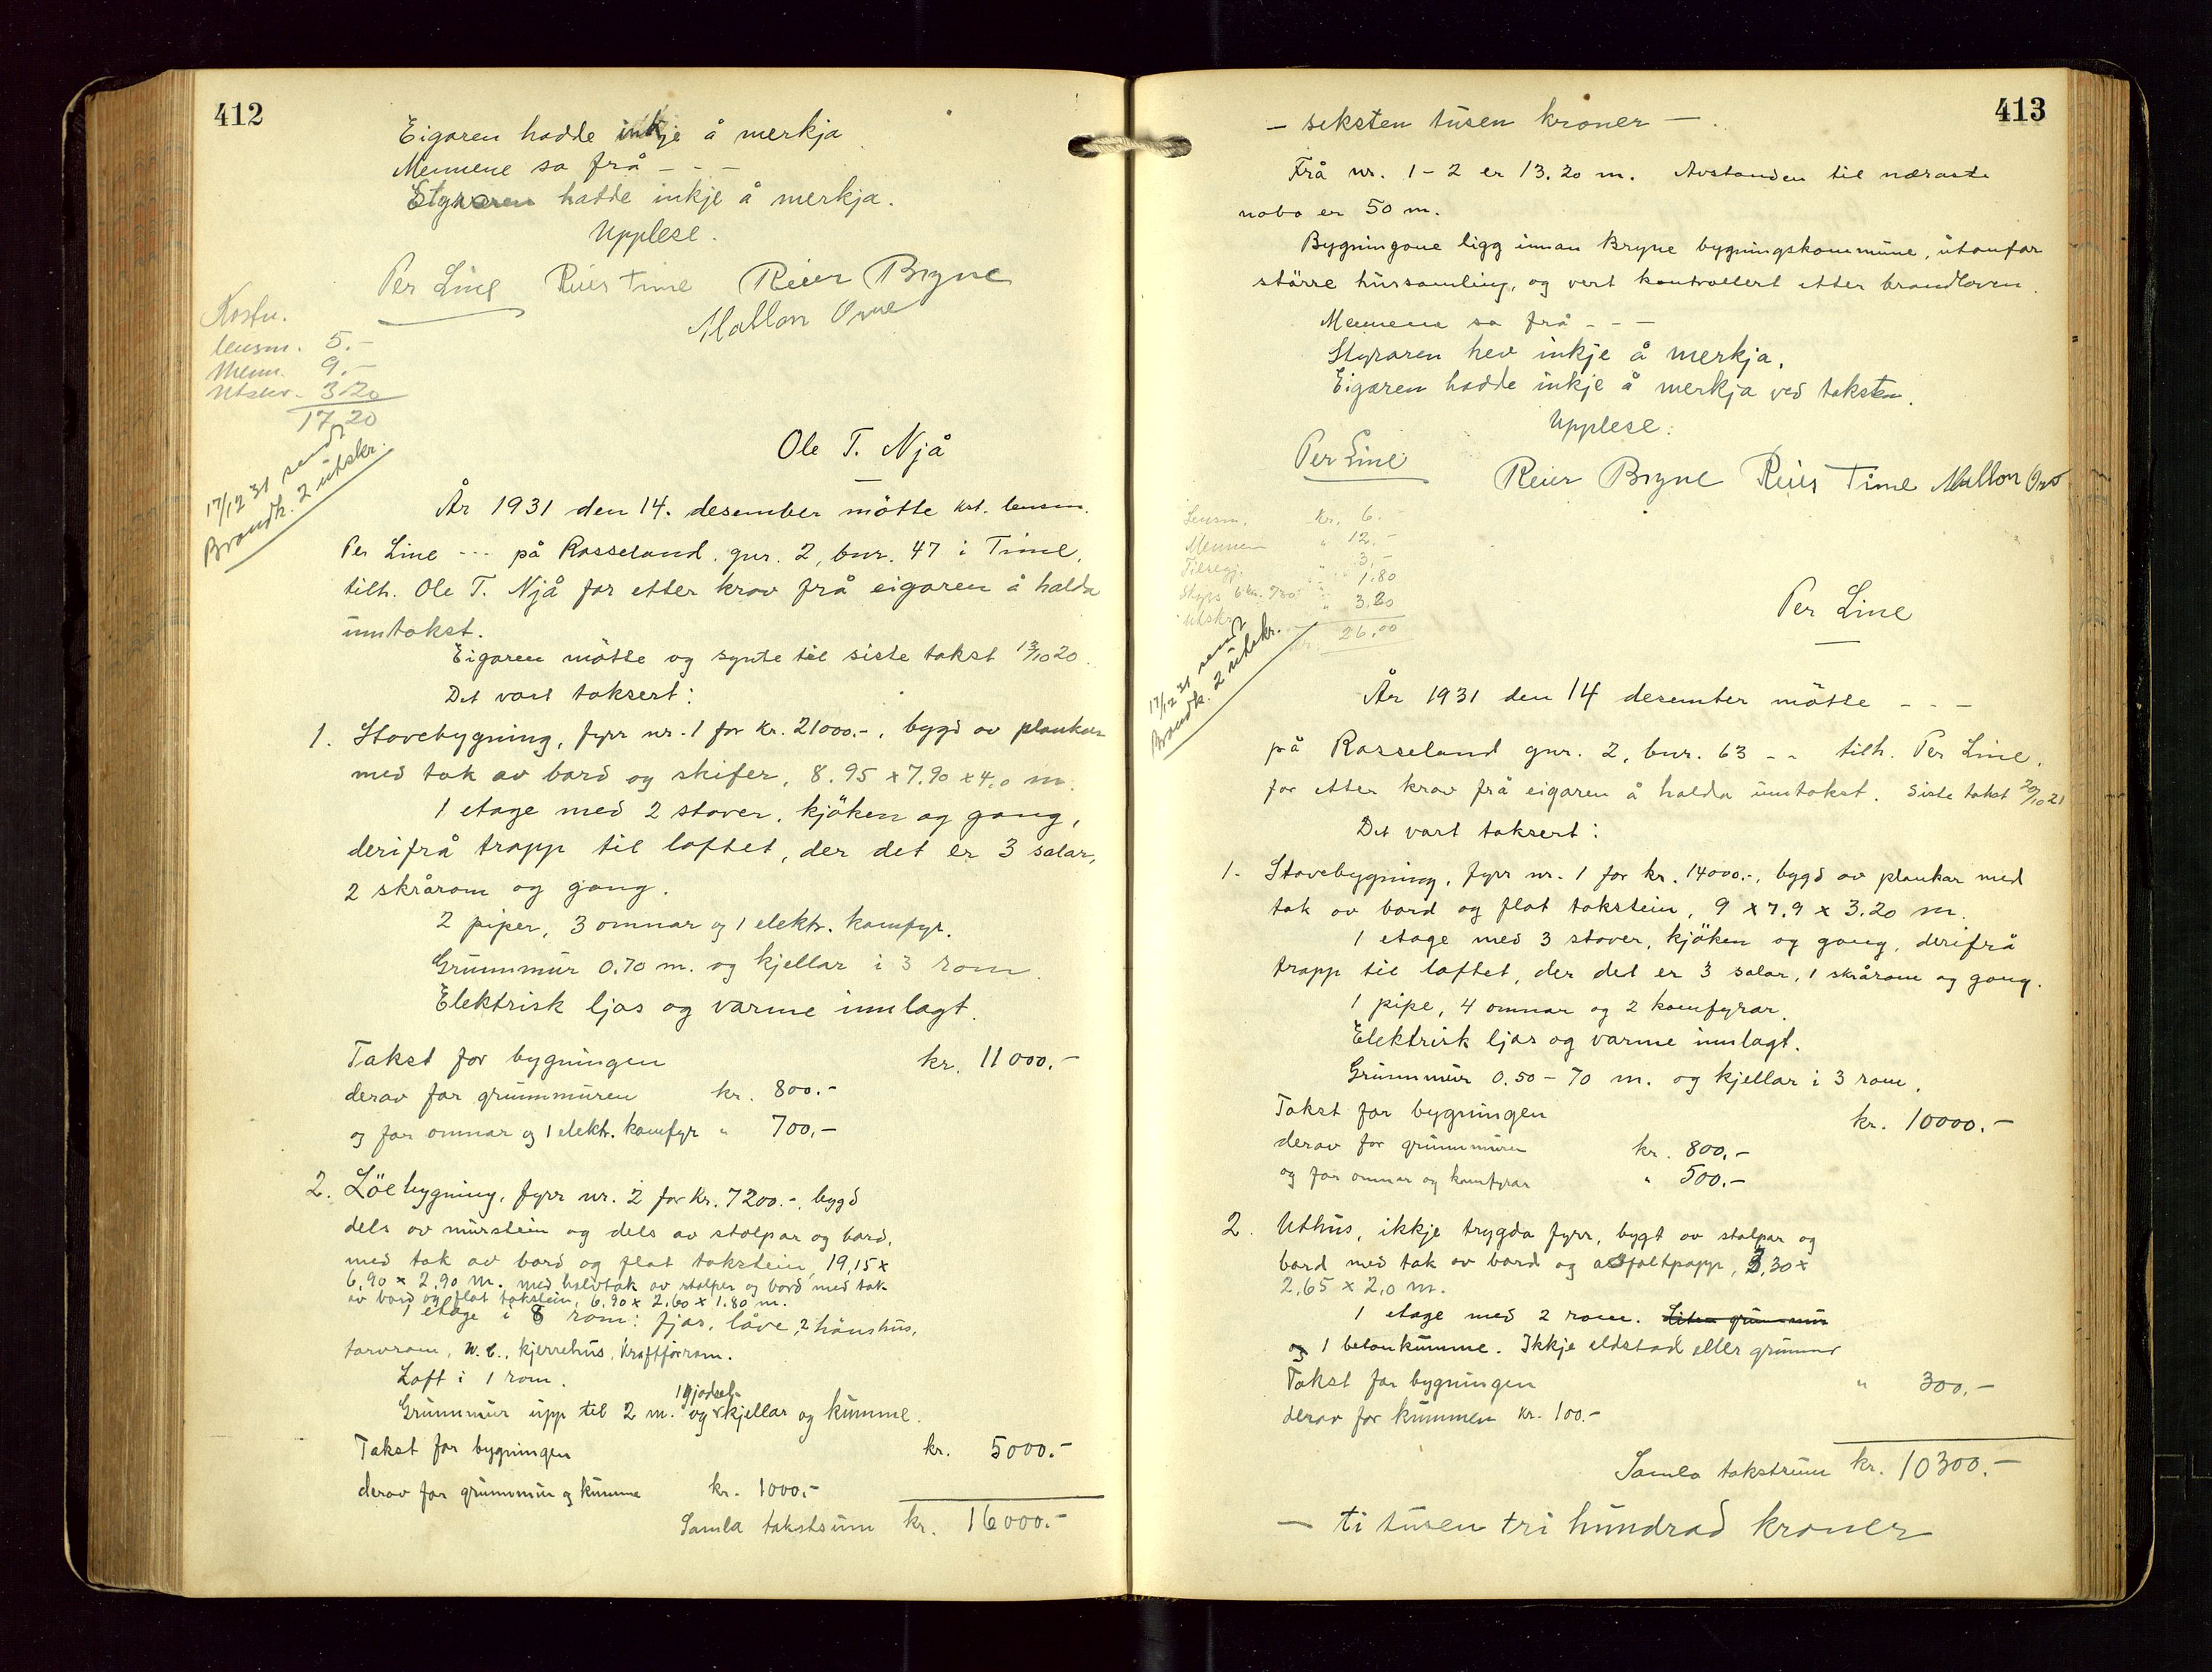 412
Eigaren hadde inkje å merkja
Mennene sa frå - - -
Styraren hadde inkje å merkja.
Upplese.
Per Line Reier Time Reier Bryne
Kostn.
lensm. 5.-
Menn. 9.-
Utskr. 3.20
17,20
17/12 31 sendt
Brandk. 2 utskr.
Ole T. Njå
År 1931 den 14. desember mötte kst. lensm.
Per Line --- på Rosseland, gnr. 2, bnr. 47 i Time,
tilh. Ole T. Njå for etter krav frå eigaren å halda
umtakst.
Eigaren mötte og synte til siste takst 13/10 20.
Det vart taksert:
1. Stovebygning, fyrr nr. 1 for kr. 21000.-, bygd av plankar
med tak av bord og skifer, 8.95 x 7.90 x 4,0 m.
1 etage med 2 stover, kjöken og gang,
derifrå trapp til loftet, der det er 3 salar,
2 skrårom og gang.
2 piper, 3 omnar og 1 elektr. komfyr.
Grunnmur 0.70 m. og kjellar i 3 rom.
Elektrisk ljos og varme innlagt.
Takst for bygningen kr. 11000.-
derav for grunnmuren kr. 800.-
og for omnar og 1 elektr. komfyr " 700,-
2. Löebygning, fyrr nr. 2 for kr. 7200.-, bygd
dels av murstein og dels av stolpar og bord,
med tak av bord og flat takstein, 19,15 x
6,90 x 2,90 m. med halvtak av stolper og bord med tak
av bord og flat takstein, 6,90 x 2,60 x 1.80 m.
1 etage i 8 rom: fjös, låve, 2 hönshus,
torvrom, W.C., kjerrehus, kraftforrom.
Loft i 1 rom.
Grunnmur upp til 2 m. og 1 gjødselkjellar og kumme.
Takst for bygningen kr. 5000.-
derav for grunnmur og kumme kr. 1000,-
Samla takstsum kr. 16000.-
413
- seksten tusen kroner -.
Frå nr. 1-2 er 13.20 m. Avstanden til næraste
nabo er 50 m.
Bygningane ligg innan Bryne bygningskommune, utanfor
större hussamling, og vert kontrollert etter brandloven.
Mennene sa frå - - -
Styraren hev inkje å merkja.
Eigaren hadde inkje å merkja ved taksten.
Upplese:
Per Line Reier Bryne Reier Time
Lensm. kr. 6.-
Mennene " 12.-
Tilsegj. " 3,-
Skyss 6 km. " 1.80
Utskr. " 3.20
kr. 26,00
17/12 31 sendt
Brandk. 2 utskr.
Per Line
År 1931 den 14 desember mötte - - -
på Rosseland gnr. 2, bnr. 63 -- tilh. Per Line,
for etter krav frå eigaren å halda umtakst. Siste takst 29/10 21
Det vart taksert:
1. Stovebygning, fyrr nr. 1 for kr. 14000.-, bygd av plankar med
tak av bord og flat takstein, 9 x 7.9 x 3.20 m.
1 etage med 3 stover, kjöken og gang, derifrå
trapp til loftet, der det er 3 salar, 1 skrårom og gang.
1 pipe, 4 omnar og 2 komfyrar.
Elektrisk ljos og varme innlagt.
Grunnmur 0.50 - 70 m. og kjellar i 3 rom.
Takst for bygningen kr. 10000.-
derav for grunnmuren kr. 800,-
og for omnar og komfyrar " 500.-
2. Uthus, ikkje trygda fyrr, bygt av stolpar og
bord med tak av bord og asfaltpapp, 3,30 x
2,65 x 2,0 m.
1 etage med 2 rom. Liten grunnmur
og 1 betonkumme. Ikkje eldstad eller grunnmur
Takst for bygningen " 300.-
derav for kummen kr. 100.-
Samla takstsum kr. 10300.-
- ti tusen tri hundrad kroner